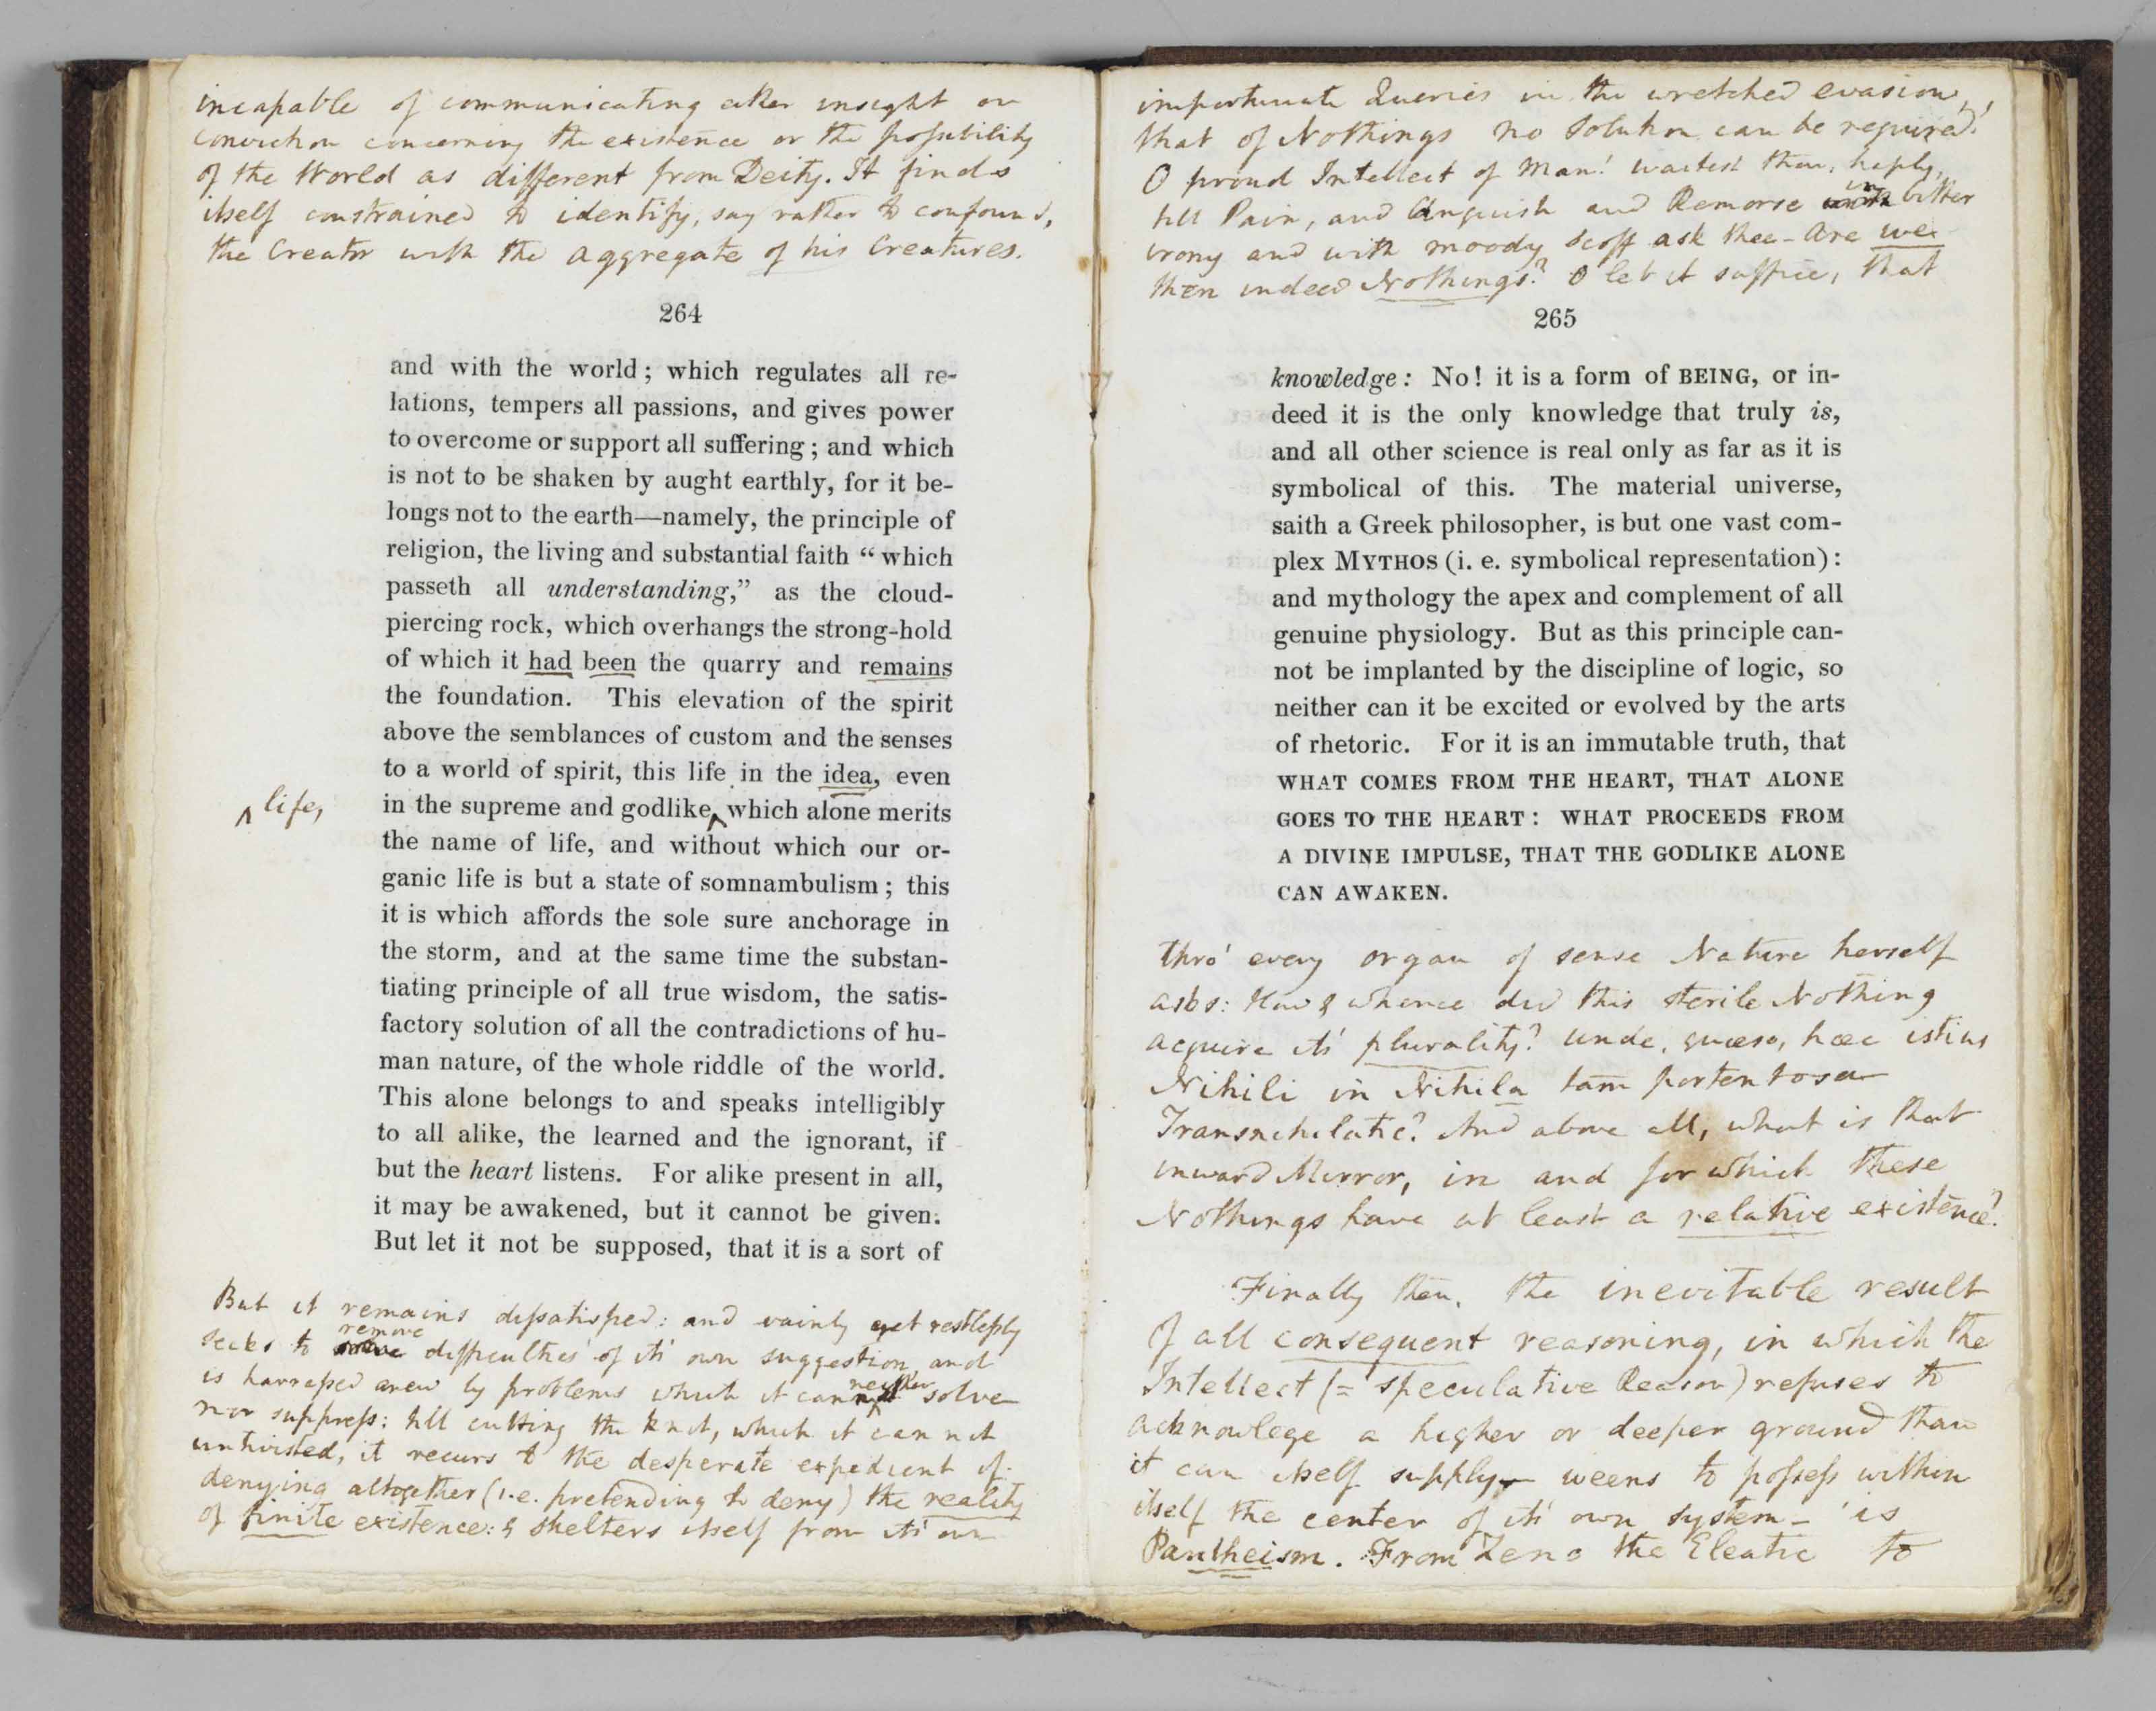 incapable of communicating either insight or
conviction concerning the existence or the possibility
of the World as different from Deity. It finds
itself constrained to identify, say rather to confound,
the Creator with the Aggregate of his Creatures.
264
and with the world; which regulates all re-
lations, tempers all passions, and gives power
to overcome or support all suffering; and which
is not to be shaken by aught earthly, for it be-
longs not to the earth—namely, the principle of
religion, the living and substantial faith “which
passeth all understanding,” as the cloud-
piercing rock, which overhangs the strong-hold
of which it had been the quarry and remains
the foundation. This elevation of the spirit
above the semblances of custom and the senses
to a world of spirit, this life in the idea, even
in the supreme and godlike, which alone merits
‸ life,
the name of life, and without which our or-
ganic life is but a state of somnambulism; this
it is which affords the sole sure anchorage in
the storm, and at the same time the substan-
tiating principle of all true wisdom, the satis-
factory solution of all the contradictions of hu-
man nature, of the whole riddle of the world.
This alone belongs to and speaks intelligibly
to all alike, the learned and the ignorant, if
but the heart listens. For alike present in all,
it may be awakened, but it cannot be given.
But let it not be supposed, that it is a sort of
But it remains dissatisfied: and vainly yet restlessly
seeks to remove difficulties of it's own suggestion, and
is harrassed anew by problems which it can neither solve
nor suppress: till cutting the knot, which it can not
untwisted, it recurs to the desperate expedient of
denying altogether (i.e. pretending to deny) the reality
of finite existence: & shelters itself from it's own
importunate Queries in the wretched evasion,
that of Nothings no solution can be required!
O proud Intellect of Man! waitest thou, haply,
till Pain, and Anguish and Remorse in bitter
irony and with moody scoff ask thee—Are we
then indeed Nothings? O let it suffice, that
265
knowledge: No! it is a form of BEING, or in-
deed it is the only knowledge that truly is,
and all other science is real only as far as it is
symbolical of this. The material universe,
saith a Greek philosopher, is but one vast com-
plex MYTHOS (i. e. symbolical representation):
and mythology the apex and complement of all
genuine physiology. But as this principle can-
not be implanted by the discipline of logic, so
neither can it be excited or evolved by the arts
of rhetoric. For it is an immutable truth, that
WHAT COMES FROM THE HEART, THAT ALONE
GOES TO THE HEART: WHAT PROCEEDS FROM
A DIVINE IMPULSE, THAT THE GODLIKE ALONE
CAN AWAKEN.
thro' every organ of sense Nature herself
asks: How & whence did this sterile Nothing
acquire it's plurality? Unde, quæso, hæc istius
Nihili in Nihila tam portentosa
Transnihilatio? And above all, what is that
inward Mirror, in and for which these
Nothings have at least a relative existence?
Finally then, the inevitable result
of all consequent reasoning, in which the
Intellect (= speculative Reason) refuses to
acknowlege a higher or deeper ground than
it can itself supply, weens to possess within
itself the center of it's own system—is
Pantheism. From Zeno the Eleatic to